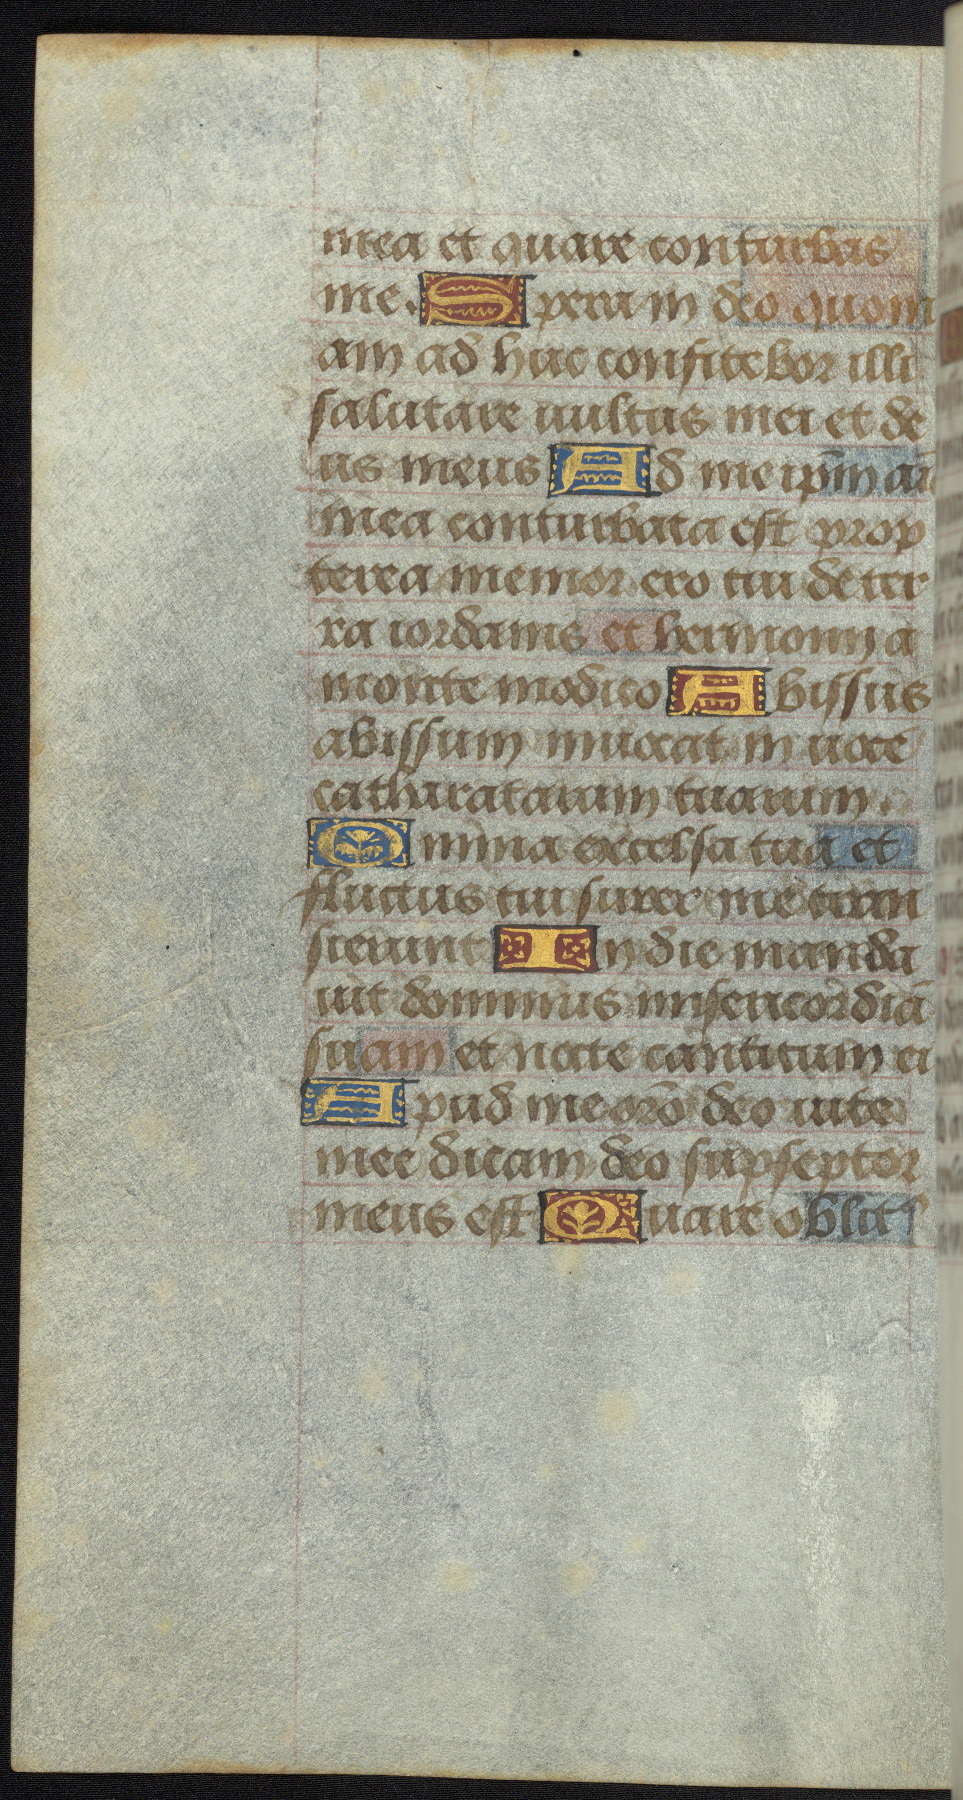 mea et quare conturbas
me. Spera in deo quoni
am ad huc confitebor illi
salutare uultus mei et de
us meus Ad me ip̄m ai
mea conturbata est prop
terea memor ero tui de ter
ra iordanis et hermonii a
monte modico Abissus
abissum inuocat in uoce
catharatarum tuarum.
Omnia excelsa tua et
fluctus tui super me tran
sierunt In die manda
uit dominus misericordiā
suam et nocte canticum ei
Apud me orō deo uite
mee dicam deo supseptor
meus est Quare oblit⁹